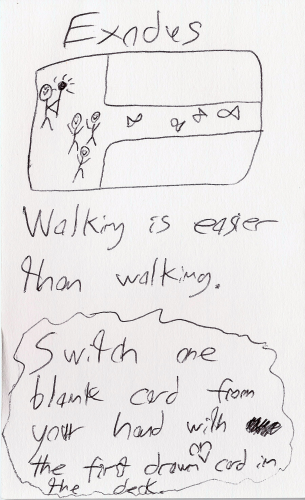 Exodus
Walking is easier
than walking.
Switch one
blank card from
your hand with
the first drawn card in
the deck.